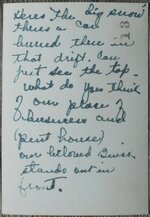 Heres the big snow
theres a car
buried there in
that drift. Can
just see the top.
what do you think
of our place of
business and
(pent house)
our lettered
stands out in
front.